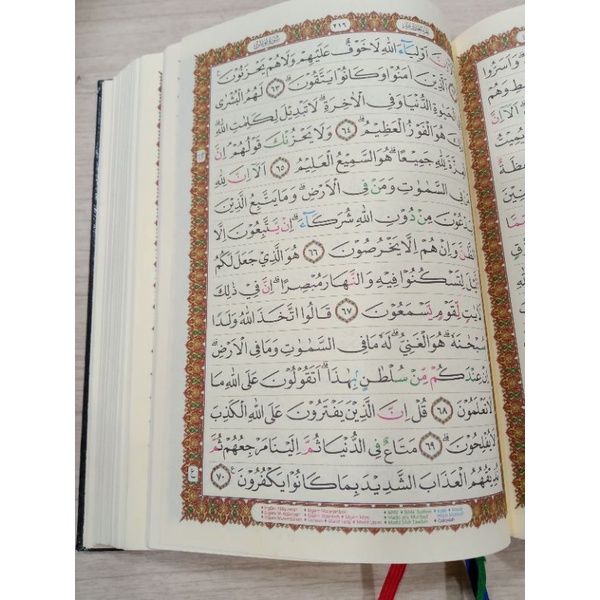 ٢١٦
اَوْلِيَاۤءَ اللّٰهِ لَا خَوْفٌ عَلَيْهِمْ وَلَا هُمْ يَحْزَنُوْنَۚ
الَّذِيْنَ اٰمَنُوْا وَكَانُوْا يَتَّقُوْنَۗ ﴿٦٣﴾ لَهُمُ الْبُشْرٰى
الْحَيٰوةِ الدُّنْيَا وَفِى الْاٰخِرَةِۗ لَا تَبْدِيْلَ لِكَلِمٰتِ اللّٰهِۗ
هُوَ الْفَوْزُ الْعَظِيْمُۗ ﴿٦٤﴾ وَلَا يَحْزُنْكَ قَوْلُهُمْۘ اِنَّ
لِلّٰهِ جَمِيْعًاۗ هُوَ السَّمِيْعُ الْعَلِيْمُ ﴿٦٥﴾ اَلَآ اِنَّ لِلّٰهِ
فِى السَّمٰوٰتِ وَمَنْ فِى الْاَرْضِۗ وَمَا يَتَّبِعُ الَّذِيْنَ
يَدْعُوْنَ مِنْ دُوْنِ اللّٰهِ شُرَكَاۤءَۗ اِنْ يَّتَّبِعُوْنَ اِلَّا
الظَّنَّ وَاِنْ هُمْ اِلَّا يَخْرُصُوْنَ ﴿٦٦﴾ هُوَ الَّذِيْ جَعَلَ لَكُمُ
لِتَسْكُنُوْا فِيْهِ وَالنَّهَارَ مُبْصِرًاۗ اِنَّ فِيْ ذٰلِكَ
لِّقَوْمٍ يَّسْمَعُوْنَ ﴿٦٧﴾ قَالُوا اتَّخَذَ اللّٰهُ وَلَدًا
سُبْحٰنَهٗۗ هُوَ الْغَنِيُّۗ لَهٗ مَا فِى السَّمٰوٰتِ وَمَا فِى الْاَرْضِۗ
اِنْ عِنْدَكُمْ مِّنْ سُلْطٰنٍۢ بِهٰذَاۗ اَتَقُوْلُوْنَ عَلَى اللّٰهِ مَا
لَا تَعْلَمُوْنَ ﴿٦٨﴾ قُلْ اِنَّ الَّذِيْنَ يَفْتَرُوْنَ عَلَى اللّٰهِ الْكَذِبَ
لَا يُفْلِحُوْنَۗ ﴿٦٩﴾ مَتَاعٌ فِى الدُّنْيَا ثُمَّ اِلَيْنَا مَرْجِعُهُمْ ثُمَّ
نُذِيْقُهُمُ الْعَذَابَ الشَّدِيْدَ بِمَا كَانُوْا يَكْفُرُوْنَ ﴿٧٠﴾